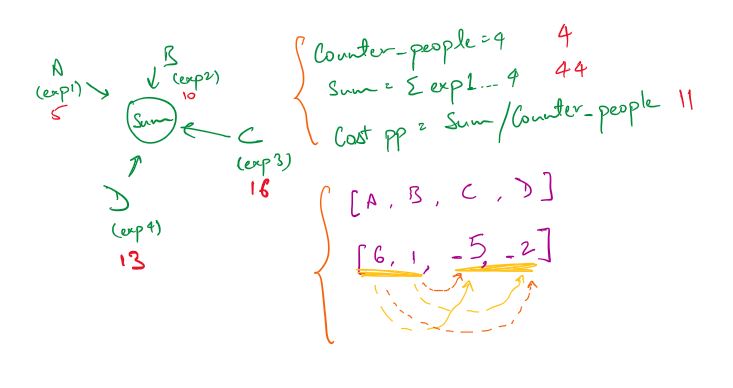 A
(exp1)
5
B
(exp2)
10
Sum
C
(exp3)
16
D
(exp4)
13
Counter_people = 4 4
Sum = Σ exp1... 4 44
Cost pp = Sum/Counter_people 11
[A, B, C, D]
[6, 1, -5, -2]